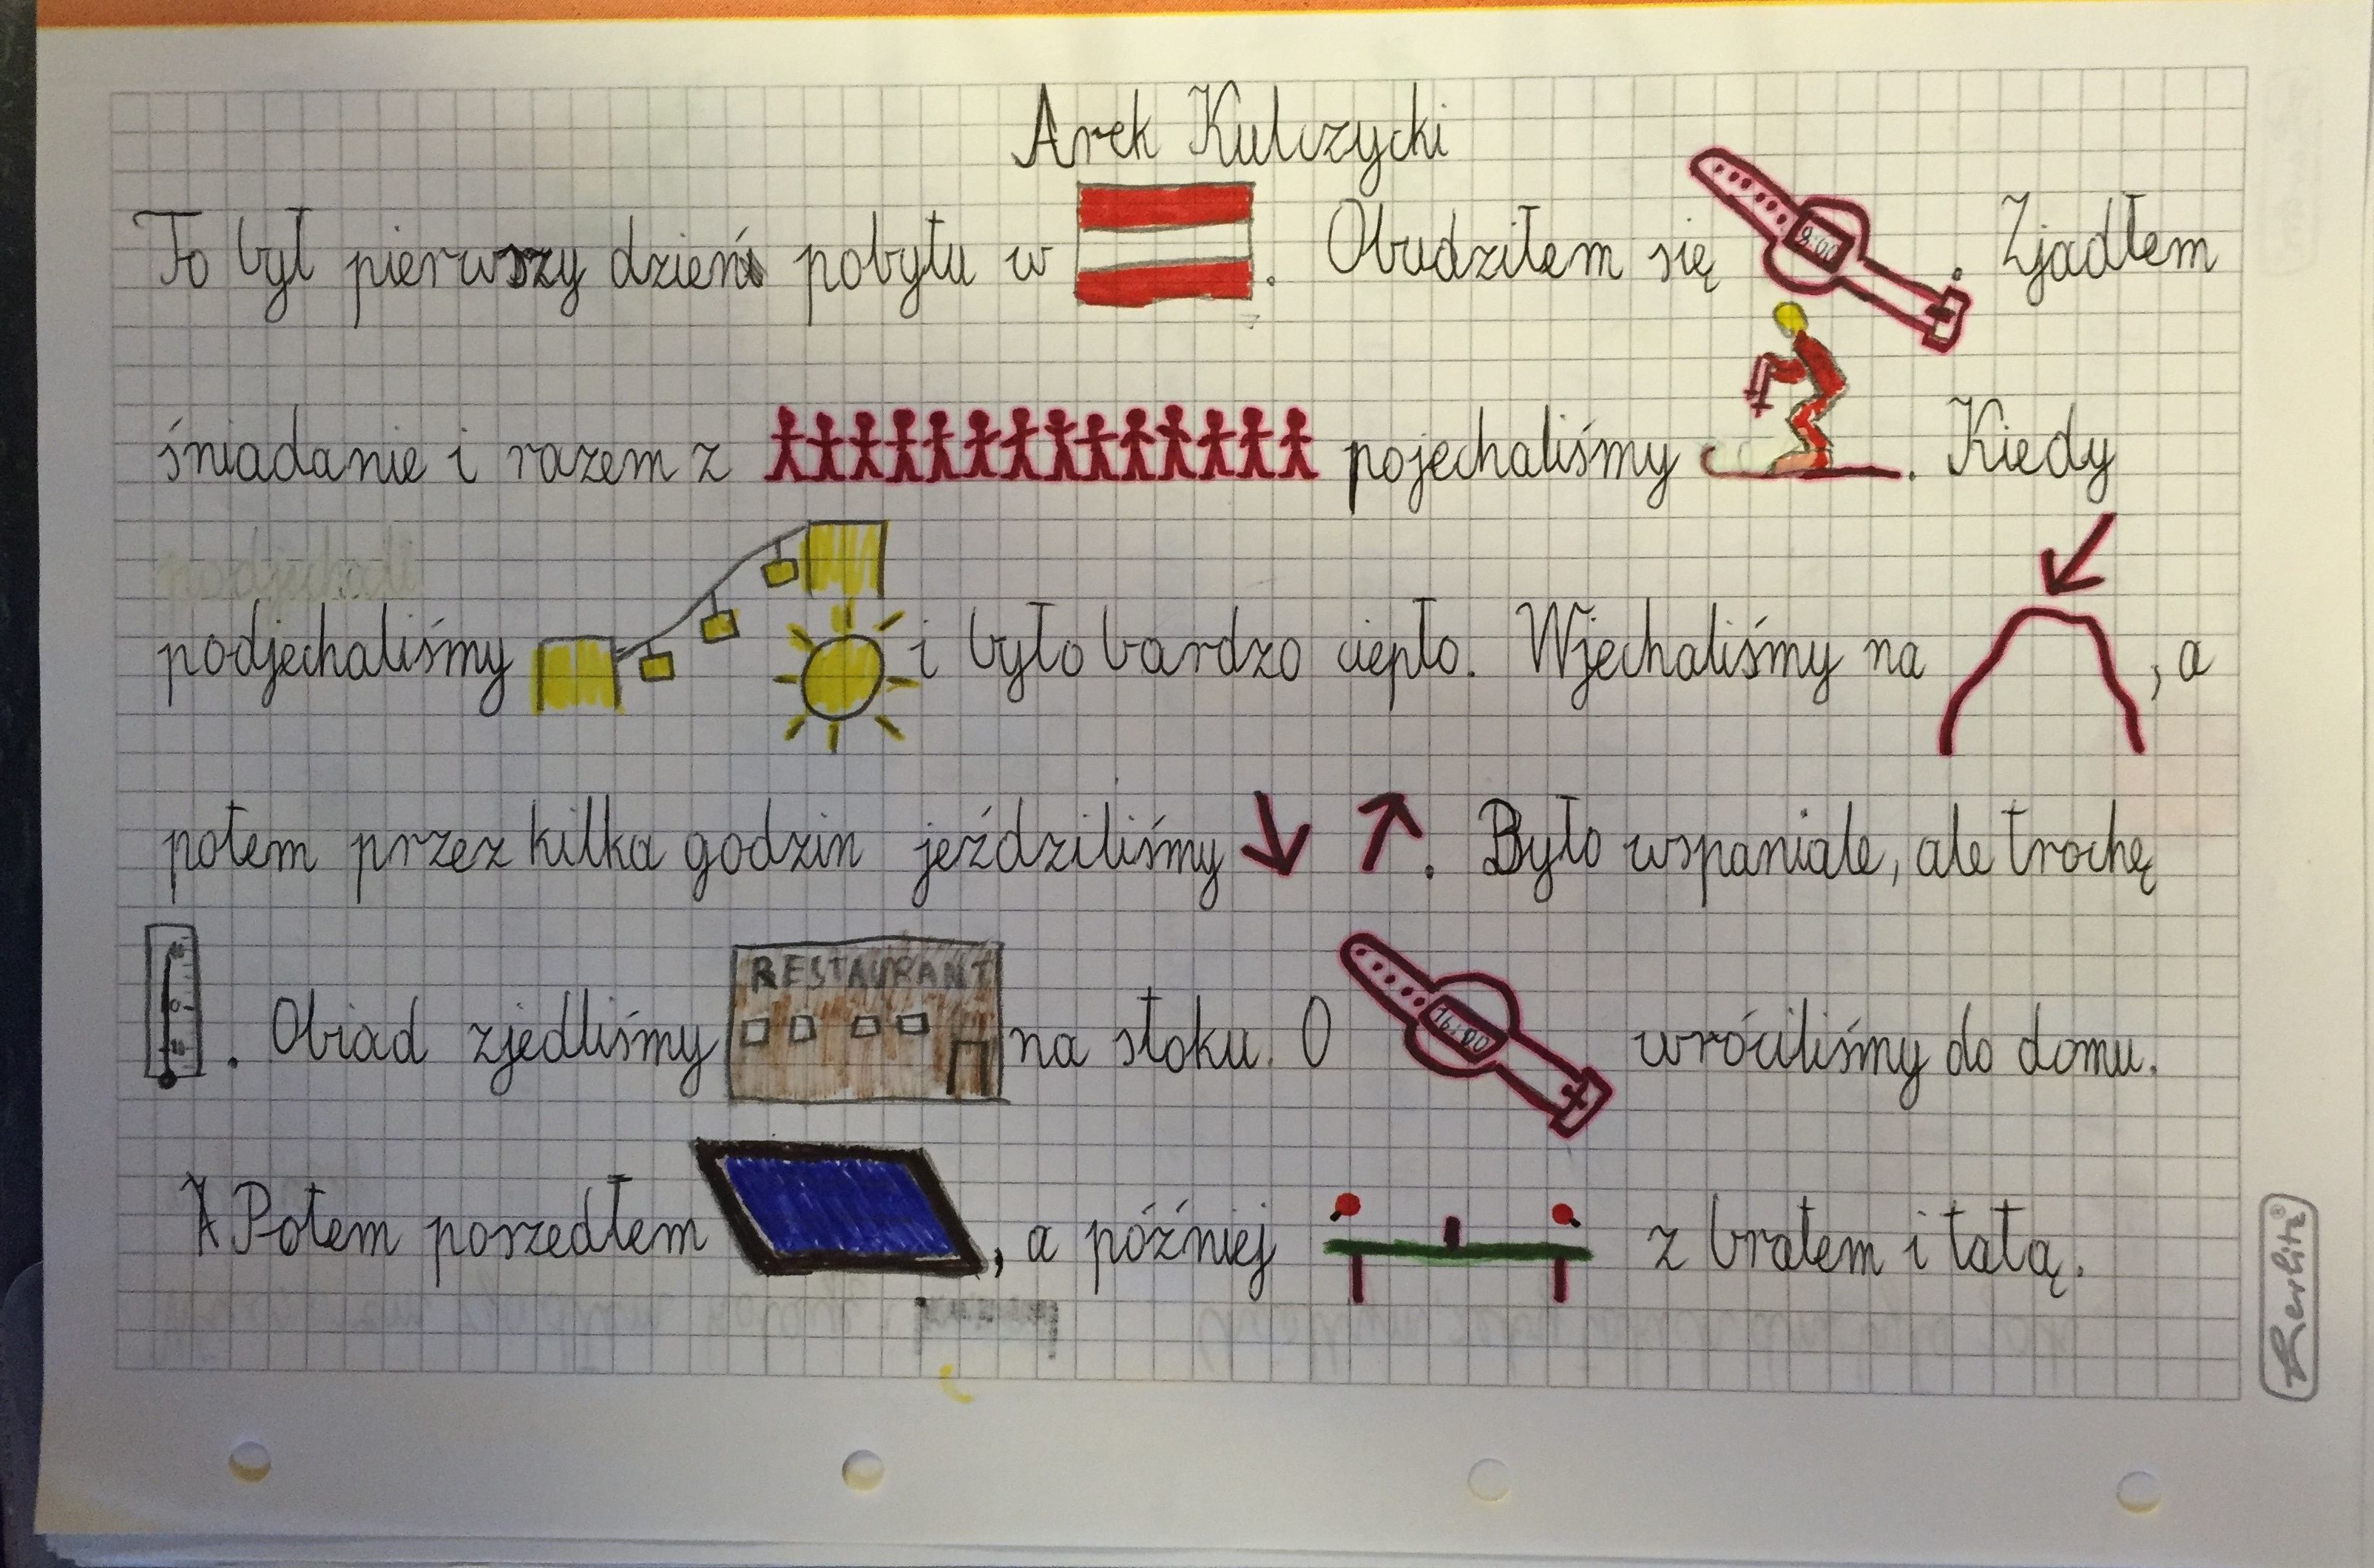 Arek Kulczycki
To był pierwszy dzień pobytu w . Obudziłem się 8:00 . Zjadłem
śniadanie i razem z pojechaliśmy . Kiedy
podjechaliśmy i było bardzo ciepło. Wjechaliśmy na , a
potem przez kilka godzin jeździliśmy . Było wspaniale, ale trochę
. Obiad zjedliśmy RESTAURANT na stoku. O 16:00 wróciliśmy do domu.
Potem poszedłem , a później z bratem i tatą.
Herlitz®